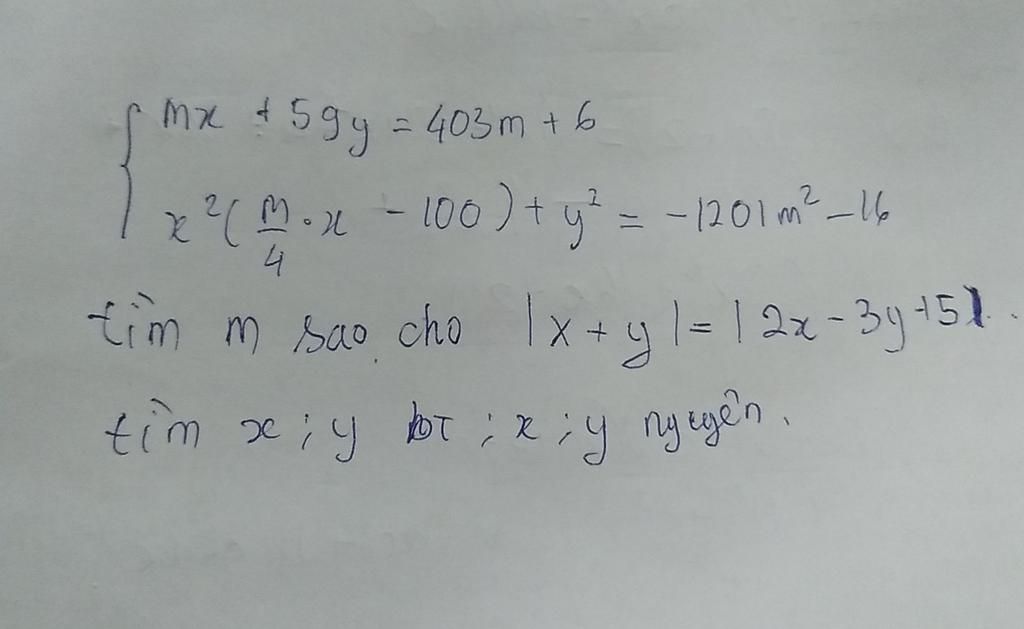 { mx + 59y = 403m + 6
x²(m/4 . x - 100) + y² = -1201m² - 16
tìm m sao cho |x + y| = |2x - 3y + 5|.
tìm x ; y bt ; x ; y nguyên.